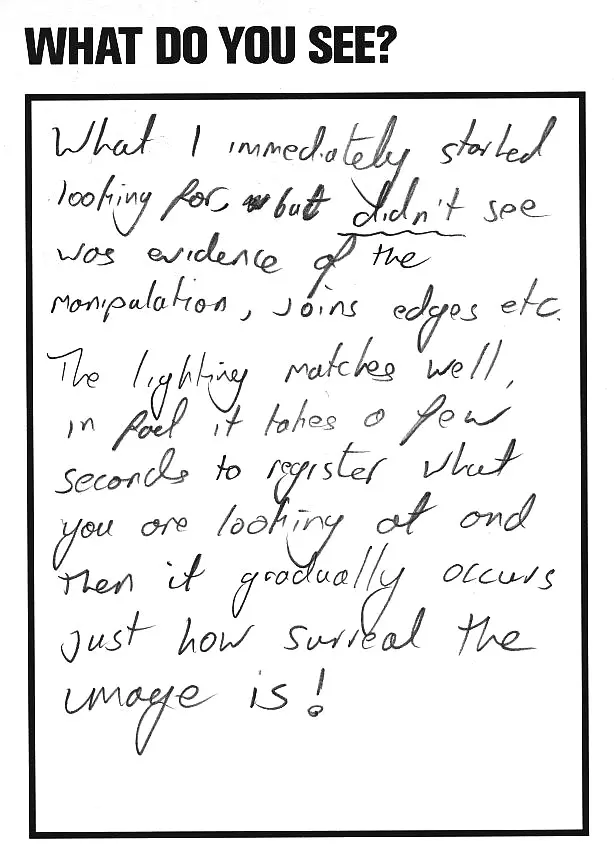 WHAT DO YOU SEE?
What I immediately started
looking for, but didn't see
was evidence of the
manipulation, joins edges etc.
The lighting matches well,
in fact it takes a few
seconds to register what
you are looking at and
then it gradually occurs
just how surreal the
image is!